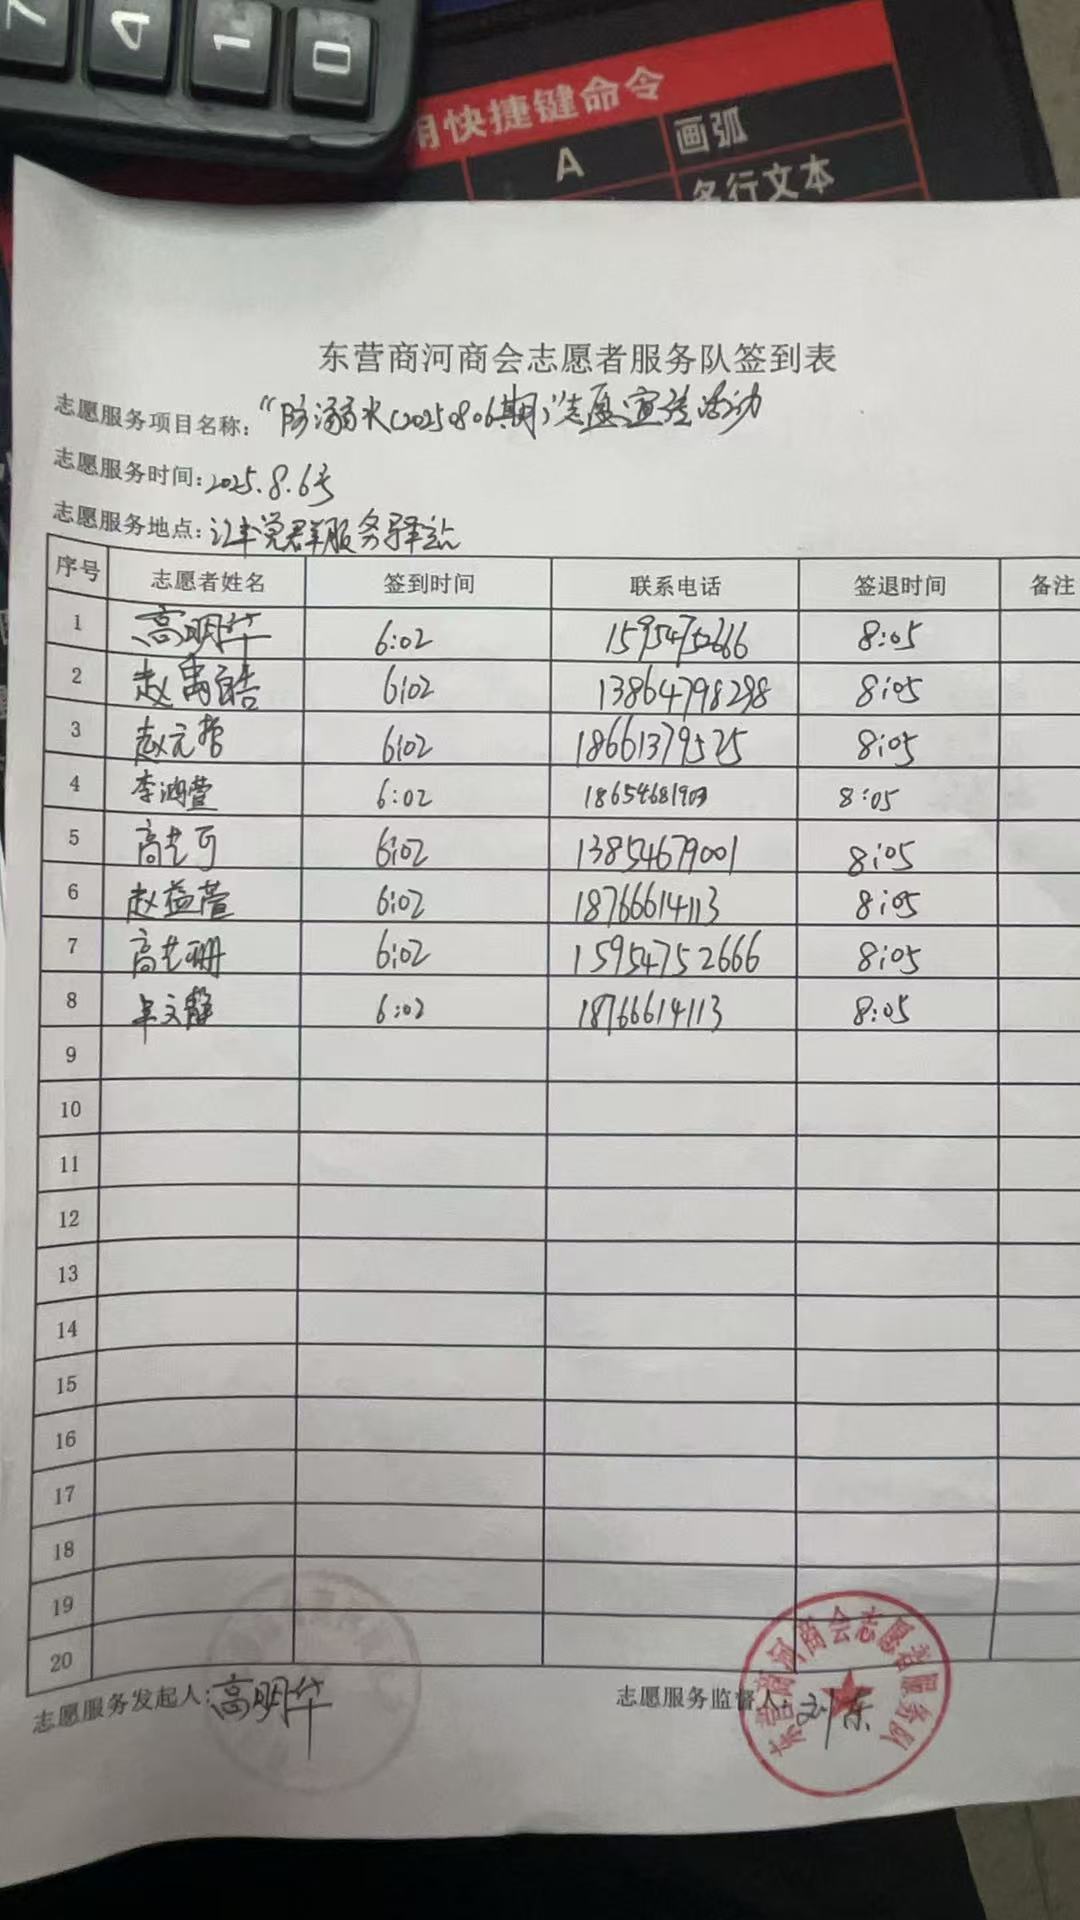 7 4 1 0
用快捷键命令
A 画弧
多行文本
东营商河商会志愿者服务队签到表
志愿服务项目名称："防溺水(20250806期)"志愿宣传活动
志愿服务时间：2025.8.6号
志愿服务地点：汇丰党群服务驿站
序号 志愿者姓名 签到时间 联系电话 签退时间 备注
1 高明华 6:02 15954752666 8:05
2 赵禹皓 6:02 13864798298 8:05
3 赵元哲 6:02 18661379525 8:05
4 李鸿萱 6:02 18654681903 8:05
5 高艺可 6:02 13854679001 8:05
6 赵益萱 6:02 18766614113 8:05
7 高艺珊 6:02 15954752666 8:05
8 文静 6:02 18766614113 8:05
9
10
11
12
13
14
15
16
17
18
19
20
志愿服务发起人：高明华 志愿服务监督人：刘东
东营商河商会志愿者服务队